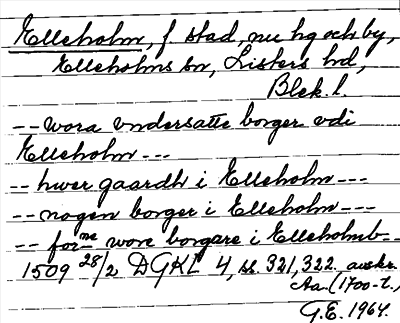 Elleholm, f. stad, nu hg och by,
Elleholms sn, Listers hd,
Blek. l.
-- wora vndersatte borger vdi
Elleholm ---
-- hwer gaardh i Elleholm ---
-- nogen borger i Elleholm ---
-- for^me wore borgare i Elleholmb--
1509 28/2 DGKL 4, s. 321, 322. avskr.
Aa. (1700-t.)
G.E. 1964.